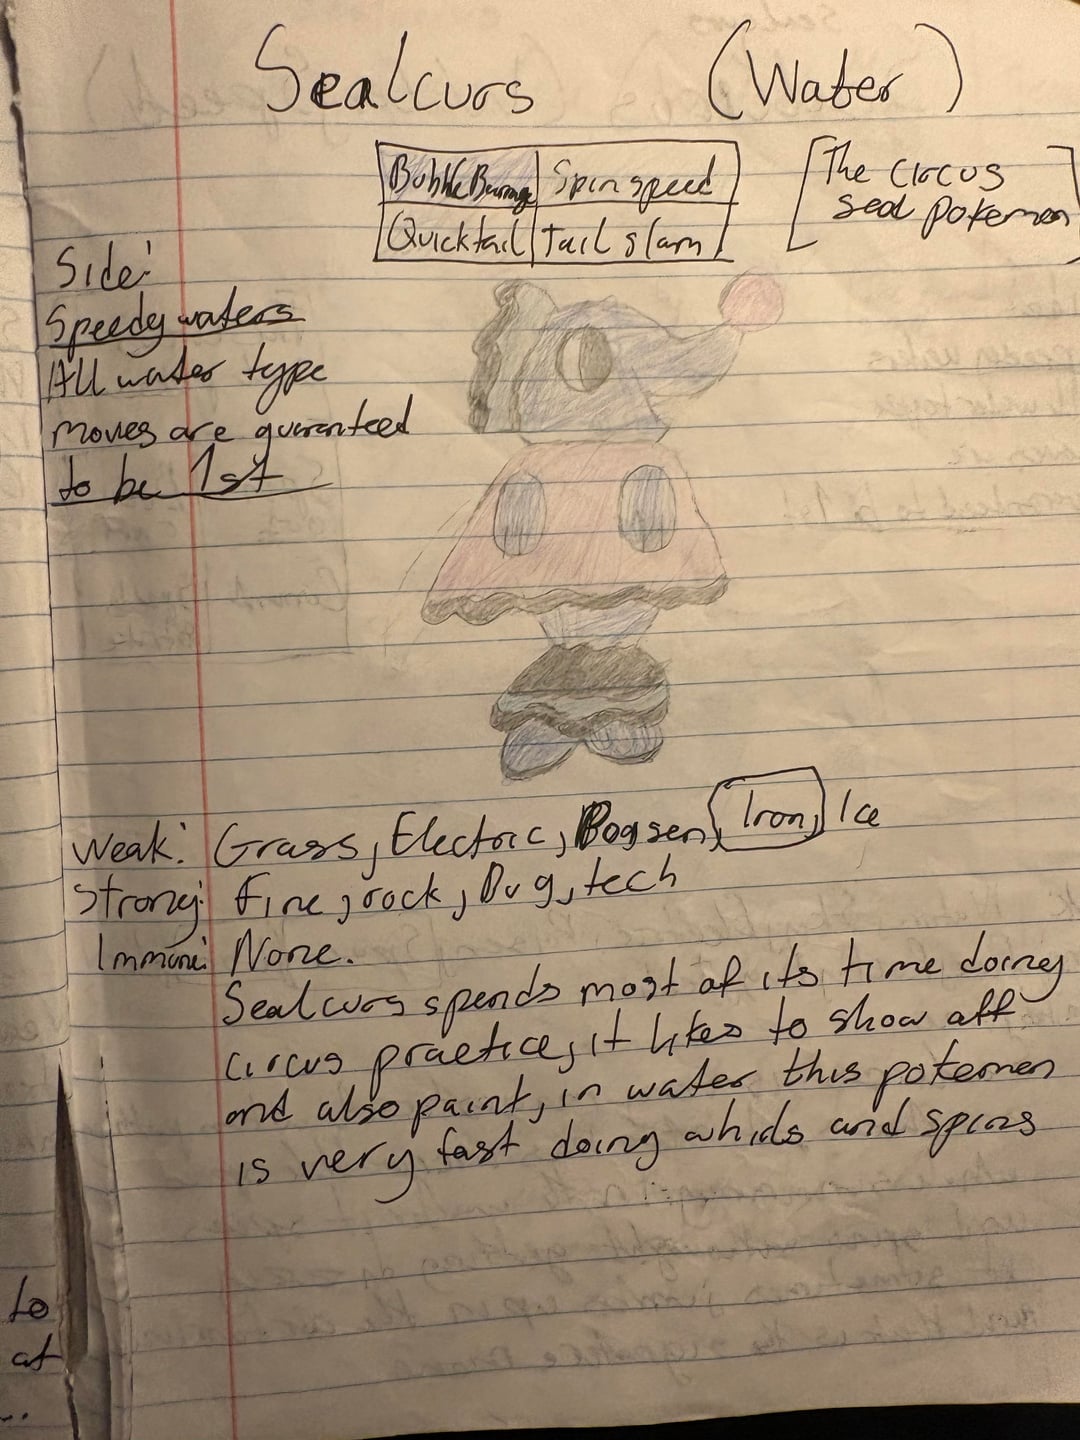 Sealcurs (Water)
Bubble Barrage Spin speed
Quicktail tail slam
[The circus
seal pokemon]
Side:
Speedy waters
All water type
moves are guarenteed
to be 1st
Weak: Grass, Electric, Iron, Ice
Strong: Fire, rock, Bug, tech
Immune: None.
Sealcurs spends most of its time doing
circus practice, it likes to show off
and also paint, in water this pokemon
is very fast doing whirls and spins
to
at
...